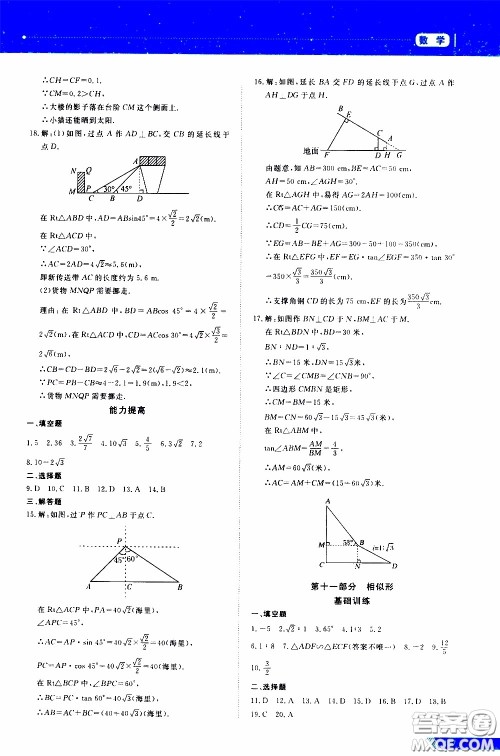 数 学
∴CH=CF=0.1.
∵CM=0.2>CH.
∴大楼的影子落在台阶 CM 这个侧面上.
∴小猫还能晒到太阳.
18.解:(1)如图,过点 A 作 AD⊥BC,交 CB 的延长线于
点 D.
N Q A
M P C 30° 45° B D
在 Rt△ABD 中,AD=ABsin45°=4×√2/2=2√2(m).
在 Rt△ACD 中,
∵∠ACD=30°,
∴AC=2AD=4√2≈5.6(m).
即新传送带 AC 的长度约为 5.6 m.
(2)货物 MNQP 需要挪走.
理由:在 Rt△ABD 中,BD=ABcos 45°=4×√2/2=
2√2(m).在 Rt△ACD 中,CD=ACcos30°=4√2×√3/2=
2√6(m).
∴CB=CD-BD=2√6-2√2≈2.1(m).
∵PC=PB-CB≈4-2.1=1.9(m),1.9<2,
∴货物 MNQP 需要挪走.
能力提高
一、填空题
1.5 2.36 3.2√7/7 4.10√3 5.4/5 6.3√2 7.2
8.10-2√3
二、选择题
9.D 10.C 11.B 12.D 13.A 14.B
三、解答题
15.解:如图,过 P 作 PC⊥AB 于点 C.
P
45° 60°
A C B
在 Rt△ACP 中,PA=40(海里),
∠APC=45°,
∴AC=AP·sin 45°=40×√2/2=20√2(海里),
PC=AP·cos 45°=40×√2/2=20√2(海里).
在 Rt△BCP 中,∠BPC=60°,
∴BC=PC·tan 60°=20√6(海里).
∴AB=AC+BC=(20√2+20√6)海里.
16.解:如图,延长 BA 交 FD 的延长线于点 G,过点 A 作
AH⊥DG 于点 H.
B
E
C A
地面 F D H G
由题意,知 AB=300 cm,BE=AC=50 cm,
AH=50 cm,∠AGH=30°.
在 Rt△AGH 中,易得 AG=2AH=100(cm).
∴CG=AC+AG=150(cm).
∴CD=1/2CG=75(cm).
∵EG=AB-BE+AG=300-50+100=350(cm).
∴在 Rt△EFG 中,EF=EG·tan∠EGF=350·tan 30°
=350×√3/3=350√3/3(cm).
∴支撑角钢 CD 的长为 75 cm,EF 的长为 350√3/3 cm.
17.解:如图作 BN⊥CD 于 N,BM⊥AC 于 M.
在 Rt△BDN 中,BD=30 米,
BN∶ND=1∶√3,
∴BN=15 米,DN=15√3 米.
∵∠C=∠CMB=∠CNB=90°,
∴四边形 CMBN 是矩形.
∴CM=BN=15 米,
BM=CN=60√3-15√3=45√3(米).
在 Rt△ABM 中,
tan∠ABM=AM/BM=4/3,
∴AM=60√3(米).
∴AC=AM+CM=(15+60√3)米.
A
M 53° B
i=1∶√3
C N D
第十一部分 相似形
基础训练
一、填空题
1.-5 2.√2∶1 3.65° 4.√3∶1 5.√2
6.1∶8 7.△ADF∽△ECF(答案不唯一) 8.-2 9.12/5
10.3/2
二、选择题
11.D 12.A 13.C 14.A 15.B 16.A 17.A 18.B
19.C 20.A
答案圈
MXQE.COM